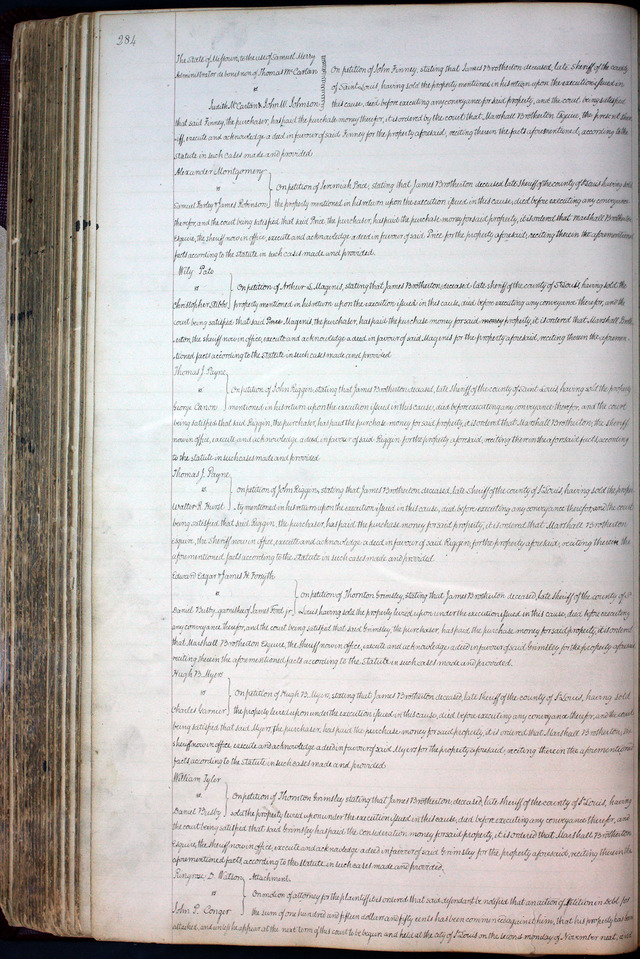 284
The State of Missouri, to the use of Samuel Merry
Administrator de bonis non of Thomas McCartan
vs
Judith McCartan & John W. Johnson
On petition of John Finney, stating that James Brotherton deceased, late Sheriff of the county
of Saint Louis, having sold the property mentioned in his return upon the execution issued in
this cause, died before executing any conveyance for said property, and the court being satisfied
that said Finney, the purchaser, has paid the purchase money therefor, it is ordered by the court that Marshall Brotherton Esquire, the present Sher-
iff, execute and acknowledge a deed in favour of said Finney for the property aforesaid, reciting therein the facts aforementioned, according to the
statute in such cases made and provided.
Alexander Montgomery
vs
Samuel & James Robinson
On petition of Jeremiah Price, stating that James Brotherton deceased, late Sheriff of the county of St Louis having sold
the property mentioned in his return upon the execution issued in this cause, died before executing any conveyance
therefor, and the court being satisfied that said Price the purchaser, has paid the purchase money for said property, it is ordered that Marshall Brotherton
Esquire, the sheriff now in office, execute and acknowledge a deed in favour of said Price for the property aforesaid, reciting therein the aforementioned
facts according to the statute in such cases made and provided.
Wily Pate
vs
Christopher Stibbs
On petition of Arthur L. Magenis, stating that James Brotherton, deceased late sheriff of the county of St Louis, having sold the
property mentioned in his return upon the execution issued in this cause, died before executing any conveyance therefor, and the
court being satisfied that said Magenis, the purchaser, has paid the purchase money for said property, it is ordered that Marshall Broth-
erton, the sheriff now in office, execute and acknowledge a deed in favour of said Magenis for the property aforesaid, reciting therein the aforemen-
tioned facts according to the statute in such cases made and provided
Thomas J. Payne
vs
George Canon
On petition of John Riggin, stating that James Brotherton deceased, late Sheriff of the county of Saint Louis, having sold the property
mentioned in his return upon the execution issued in this cause, died before executing any conveyance therefor, and the court
being satisfied that said Riggin, the purchaser, has paid the purchase money for said property, it is ordered that Marshall Brotherton, the sheriff
now in office, execute and acknowledge a deed in favour of said Riggin for the property aforesaid, reciting therein the aforesaid facts, according
to the statute in such cases made and provided
Thomas J. Payne
vs
Walter R. Hurst
On petition of John Riggin, stating that James Brotherton deceased, late Sheriff of the county of St Louis, having sold the proper-
ty mentioned in his return upon the execution issued in this cause, died before executing any conveyance therefor, and the court
being satisfied that said Riggin, the purchaser, has paid the purchase money for said property, it is ordered that Marshall Brotherton
Esquire, the Sheriff now in office, execute and acknowledge a deed in favour of said Riggin for the property aforesaid, reciting therein the
aforementioned facts according to the Statute in such cases made and provided.
Edward Edgar & James H. Forsyth
vs
Daniel Busby, garnishee of James Ford jr.
On petition of Thornton Grimsley, stating that James Brotherton deceased, late sheriff of the county of St
Louis, having sold the property levied upon under the execution issued in this cause, died before executing
any conveyance therefor, and the court being satisfied that said Grimsley, the purchaser, has paid the purchase money for said property, it is ordered
that Marshall Brotherton Esquire, the Sheriff now in office, execute and acknowledge a deed in favour of said Grimsley for the property aforesaid
reciting therein the aforementioned facts according to the Statute in such cases made and provided.
Hugh B. Myers
vs
Charles Garnier
On petition of Hugh B. Myers, stating that James Brotherton deceased, late Sheriff of the county of St Louis, having sold
the property levied upon under the execution issued in this cause, died before executing any conveyance therefor, and the court
being satisfied that said Myers, the purchaser, has paid the purchase money for said property, it is ordered that Marshall Brotherton, the
Sheriff now in office execute and acknowledge a deed in favour of said Myers for the property aforesaid, reciting therein the aforementioned
facts, according to the statute in such cases made and provided
William Tyler
vs
Daniel Busby
On petition of Thornton Grimsley stating that James Brotherton, deceased, late Sheriff of the county of St Louis, having
sold the property levied upon under the execution issued in this cause, died before executing any conveyance therefor, and
the court being satisfied that said Grimsley has paid the consideration money for said property, it is ordered that Marshall Brotherton
Esquire, the sheriff now in office, execute and acknowledge a deed in favor of said Grimsley for the property aforesaid, reciting therein the
aforementioned facts, according to the statute in such cases made and provided.
Ringrose D. Watson
vs
John P. Conger
Attachment.
On motion of attorney for the plaintiff it is ordered that said defendant be notified that an action of Petition in debt for
the sum of one hundred and fifteen dollars and fifty cents has been commenced against him, that his property has been
attached, and unless he appear at the next term of this court to be begun and held at the city of St Louis on the second monday of November next, and